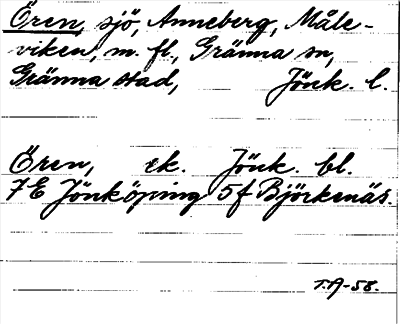 Ören, sjö, Anneberg, Måle-
viken, m. fl., Gränna sn,
Gränna stad, Jönk. l.
Ören, ek. Jönk. bl.
7E Jönköping 5f Björkenäs.
T.A-58.